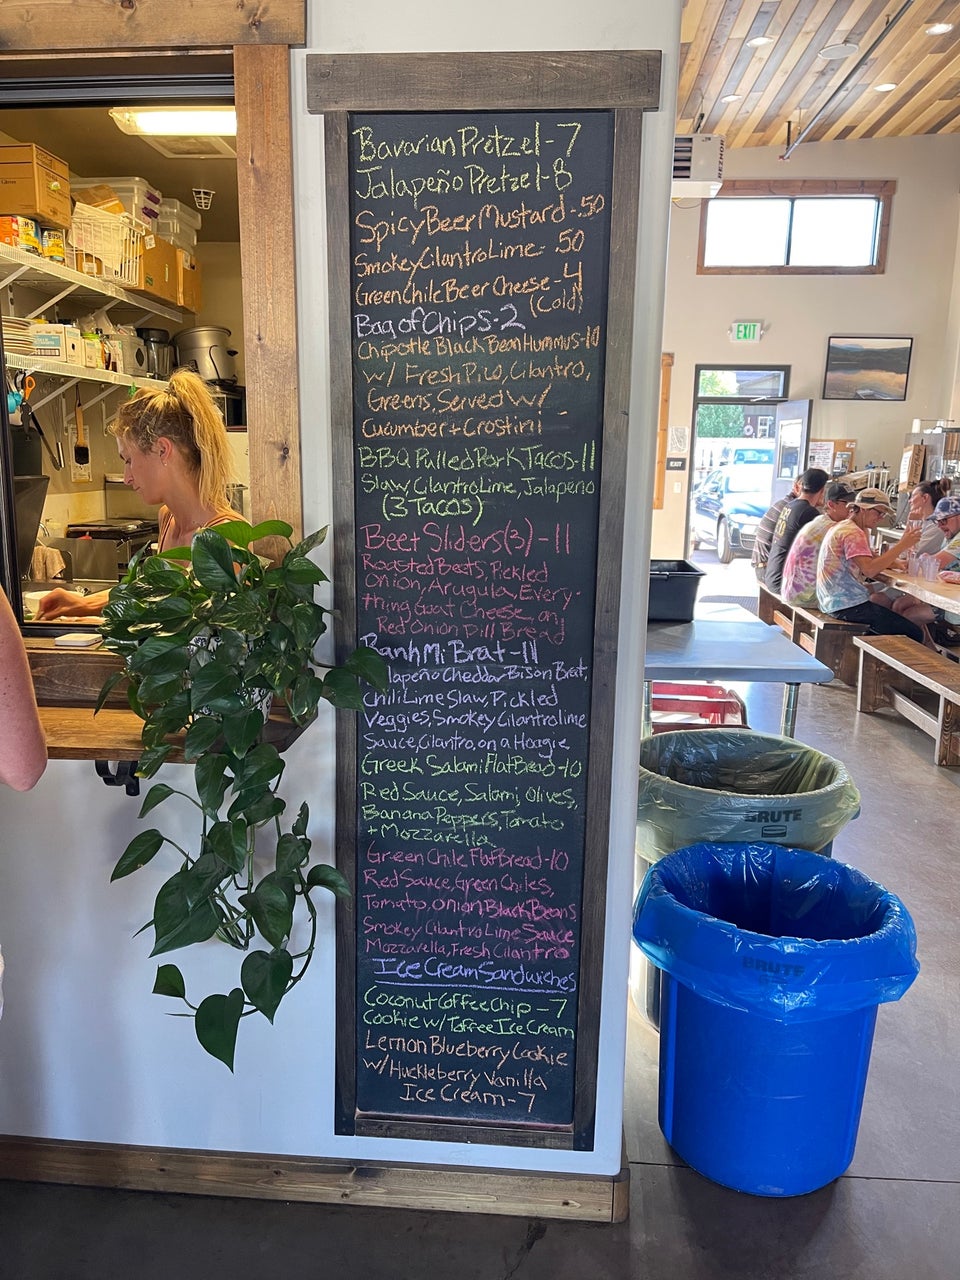 Bavarian Pretzel-7
Jalapeño Pretzel-8
Spicy Beer Mustard-.50
Smokey Cilantro Lime-.50
Green Chile Beer Cheese-4
(Cold)
Bag of Chips-2
Chipotle Black Bean Hummus-10
w/ Fresh Pico, Cilantro,
Greens, Served w/
Cucumber + Crostini
BBQ Pulled Pork Tacos-11
Slaw, Cilantro Lime, Jalapeño
(3 Tacos)
Beet Sliders(3)-11
Roasted Beets, Pickled
Onion, Arugula, Every-
thing Goat Cheese, on
Red Onion Dill Bread
Banh Mi Brat-11
alapeño Cheddar Bison Brat,
Chili Lime Slaw, Pickled
Veggies, Smokey Cilantro lime
Sauce, Cilantro, on a Hoagie
Greek Salami FlatBread-10
Red Sauce, Salami, Olives,
Banana Peppers, Tomato
+ Mozzarella
Green Chile FlatBread-10
Red Sauce, Green Chiles,
Tomato, Onion Black Beans
Smokey Cilantro Lime Sauce
Mozzarella, Fresh Cilantro
Ice Cream Sandwiches
Coconut Coffee Chip-7
Cookie w/ Toffee Ice Cream
Lemon Blueberry Cookie
w/ Huckleberry Vanilla
Ice Cream-7
REZNOR
EXIT
EXIT
BRUTE
BRUTE